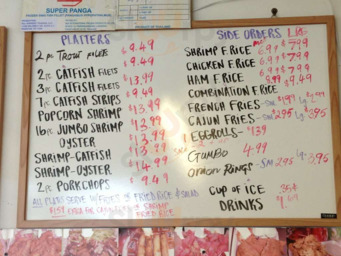 SUPER PANGA
PLATTERS
2 pc TROUT FILETS $9.49
2 pc CATFISH FILETS $9.49
3 pc CATFISH FILETS $13.99
7 pc CATFISH STRIPS $9.49
POPCORN SHRIMP $13.99
16 pc JUMBO SHRIMP $13.99
OYSTER $13.99
SHRIMP-CATFISH $13.99
SHRIMP-OYSTER $14.99
2 pc PORK CHOPS $9.49
SIDE ORDERS LG
SHRIMP F. RICE 6.99 $7.99
CHICKEN F. RICE 6.99 $7.99
HAM F RICE 6.99 $7.99
COMBINATION F. RICE 8.99 $9.49
FRENCH FRIES - SM $1.99 Lg $2.99
CAJUN FRIES - SM 2.95 Lg 3.95
1 EGGROLLS - $1.39
GUMBO 4.99
ONION RINGS - SM 2.95 Lg 3.95
CUP OF ICE .35¢
DRINKS